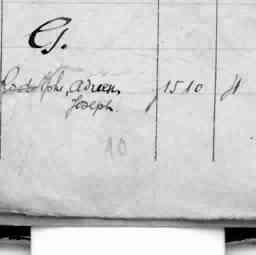 G.
Rodolphe, Adrien, 1510
Joseph.
10